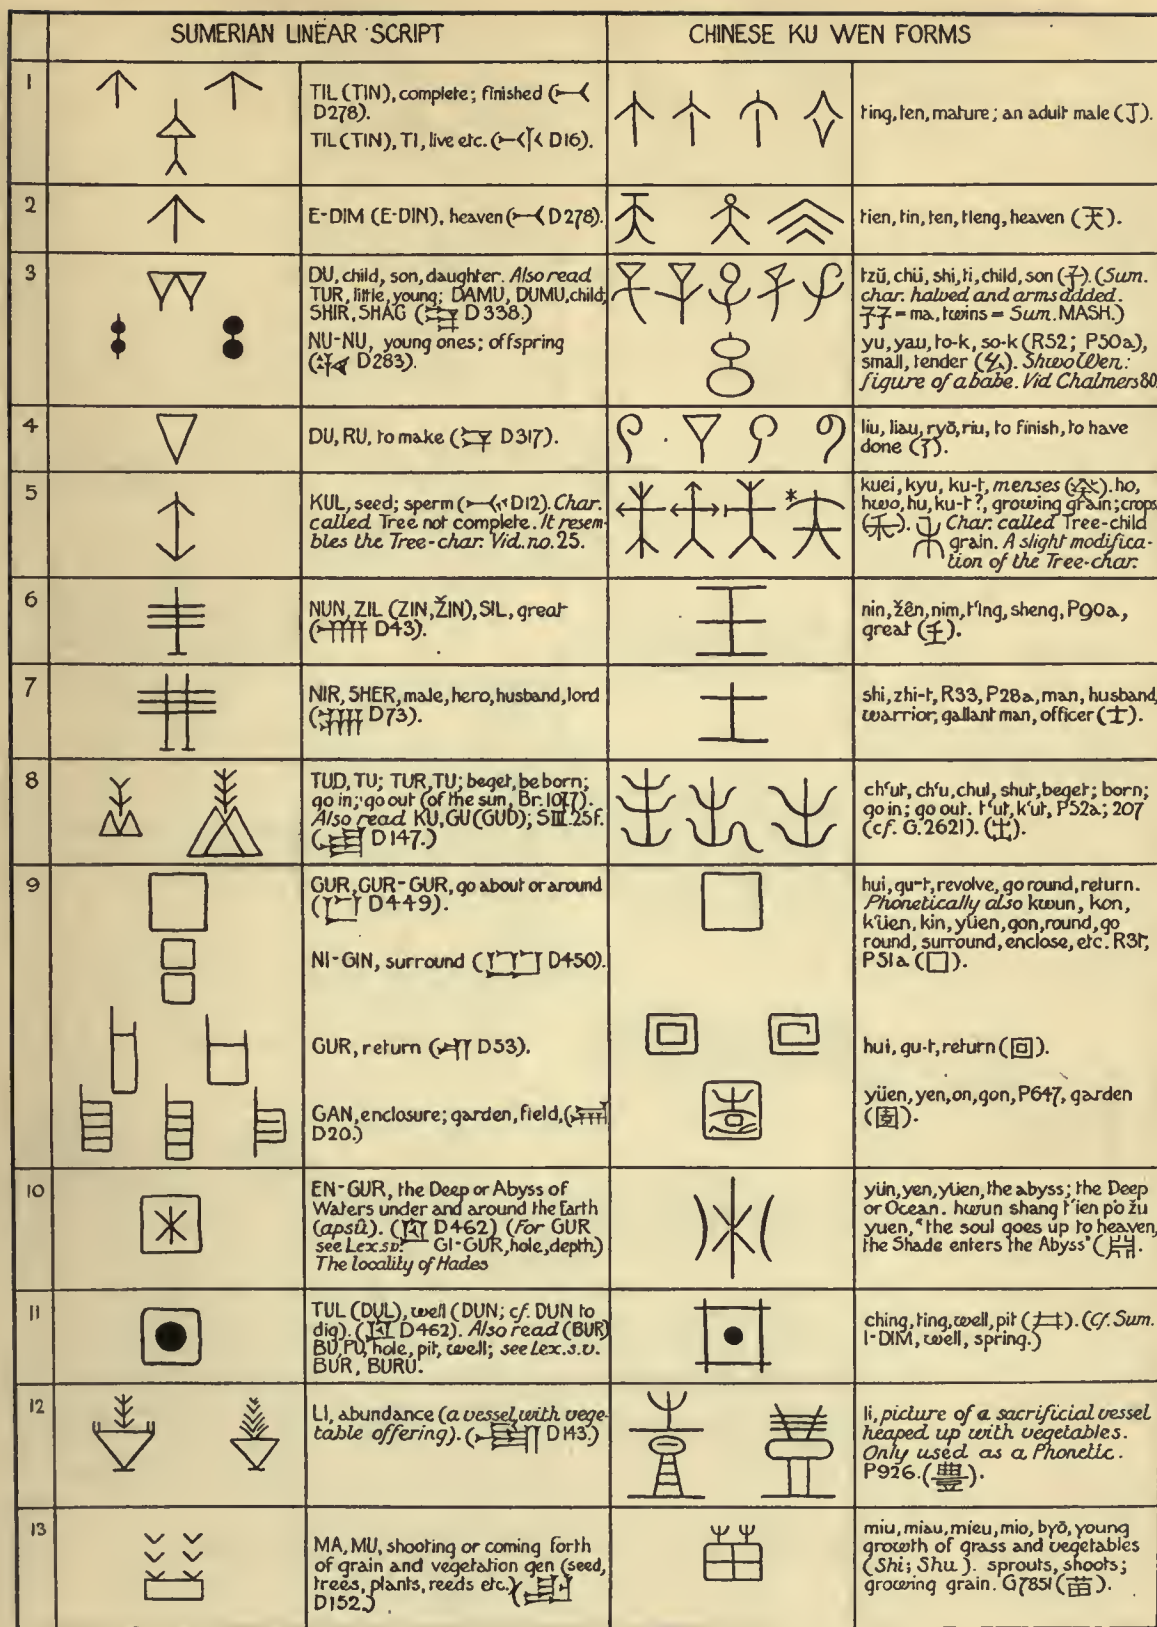 SUMERIAN LINEAR SCRIPT
CHINESE KU WEN FORMS
1
TIL (TIN), complete; finished (
D278).
TIL (TIN), TI, live etc. ( D16).
ting, ten, mature; an adult male (丁).
2
E-DIM (E-DIN), heaven ( D278).
tien, tin, ten, tleng, heaven (天).
3
DU, child, son, daughter. Also read
TUR, little, young; DAMU, DUMU, child;
SHIR, SHAG ( D338.)
NU-NU, young ones; offspring
( D283).
tzŭ, chü, shi, ti, child, son (子). (Sum.
char. halved and arms added.
子子 = ma, twins = Sum. MASH.)
yu, yau, to-k, so-k (R52; P50a),
small, tender (幺). Shwo Wen:
figure of a babe. Vid Chalmers 80.
4
DU, RU, to make ( D317).
liu, liau, ryō, riu, to finish, to have
done (了).
5
KUL, seed; sperm ( D12). Char.
called Tree not complete. It resem-
bles the Tree-char. Vid. no. 25.
kuei, kyu, ku-t, menses (癸). ho,
hwo, hu, ku-t?, growing grain; crops
(禾). Char. called Tree-child
grain. A slight modifica-
tion of the Tree-char.
6
NUN, ZIL (ZIN, ŽIN), SIL, great
( D43).
nin, žên, nim, t'ing, sheng, P90a,
great (壬).
7
NIR, SHER, male, hero, husband, lord
( D73).
shi, zhi-t, R33, P28a, man, husband,
warrior; gallant man, officer (士).
8
TUD, TU; TUR, TU; beget, be born;
go in; go out (of the sun, Br. 1077).
Also read KU, GU (GUD); SIII. 25f.
( D147.)
ch'ut, ch'u, chul, shut, beget; born;
go in; go out. t'ut, k'ut, P52a; 207
(cf. G.2621). (出).
9
GUR, GUR-GUR, go about or around
( D449).
NI-GIN, surround ( D450).
GUR, return ( D53).
GAN, enclosure; garden, field, (
D20.)
hui, gu-t, revolve, go round, return.
Phonetically also kwun, kon,
k'üen, kin, yüen, gon, round, go
round, surround, enclose, etc. R31,
P51a (囗).
hui, gu-t, return (回).
yüen, yen, on, gon, P647, garden
(園).
10
EN-GUR, the Deep or Abyss of
Waters under and around the Earth
(apsû). ( D462) (For GUR
see Lex. s.v. GI-GUR, hole, depth.)
The locality of Hades
yün, yen, yüen, the abyss; the Deep
or Ocean. hwun shang t'ien p'o žu
yuen, "the soul goes up to heaven,
the Shade enters the Abyss" (
11
TUL (DUL), well (DUN; cf. DUN to
dig). ( D462). Also read (BUR)
BU, PU, hole, pit, well; see Lex. s.v.
BUR, BURU.
ching, ting, well, pit (井). (Cf. Sum.
I-DIM, well, spring.)
12
LI, abundance (a vessel with vege-
table offering). ( D143.)
li, picture of a sacrificial vessel
heaped up with vegetables.
Only used as a Phonetic.
P926. (豊).
13
MA, MU, shooting or coming forth
of grain and vegetation gen (seed,
trees, plants, reeds etc.) (
D152.)
miu, miau, mieu, mio, byō, young
growth of grass and vegetables
(Shi; Shu). sprouts, shoots;
growing grain. G7851 (苗).